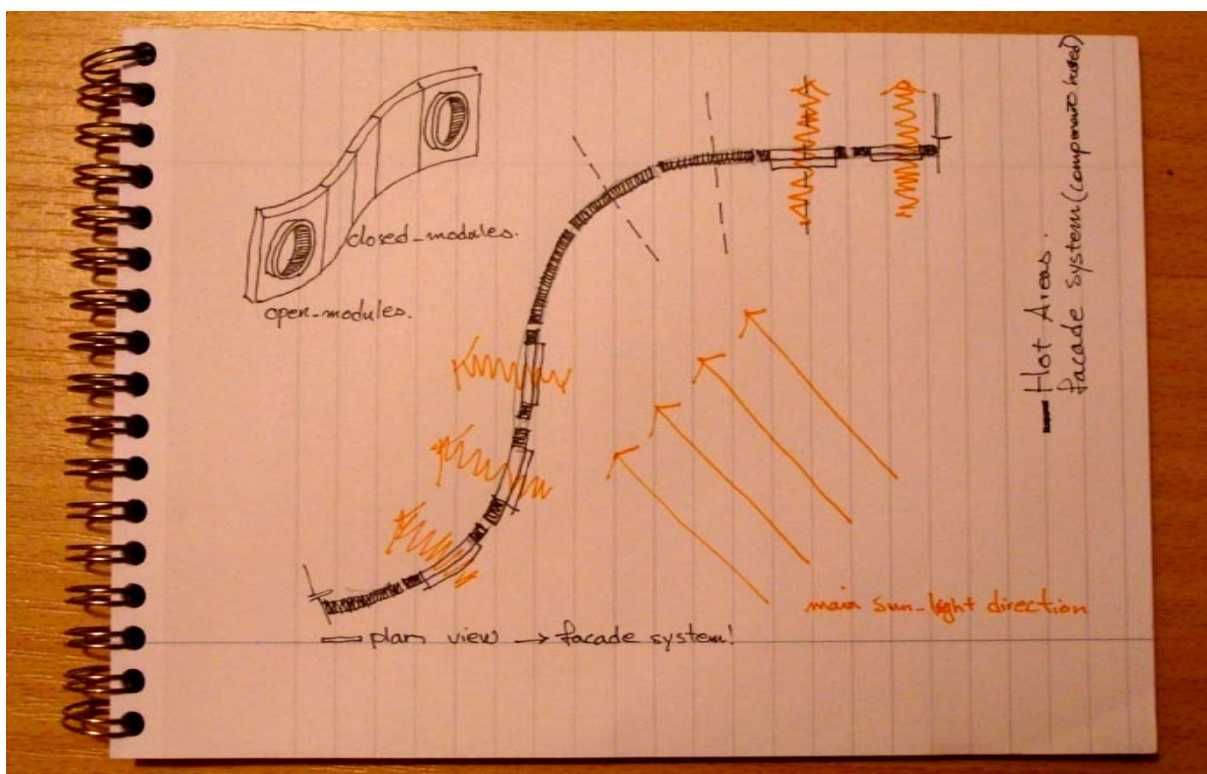 closed_modules.
open_modules.
Hot Areas.
facade system (components based)
main sun_light direction
plan view → facade system!